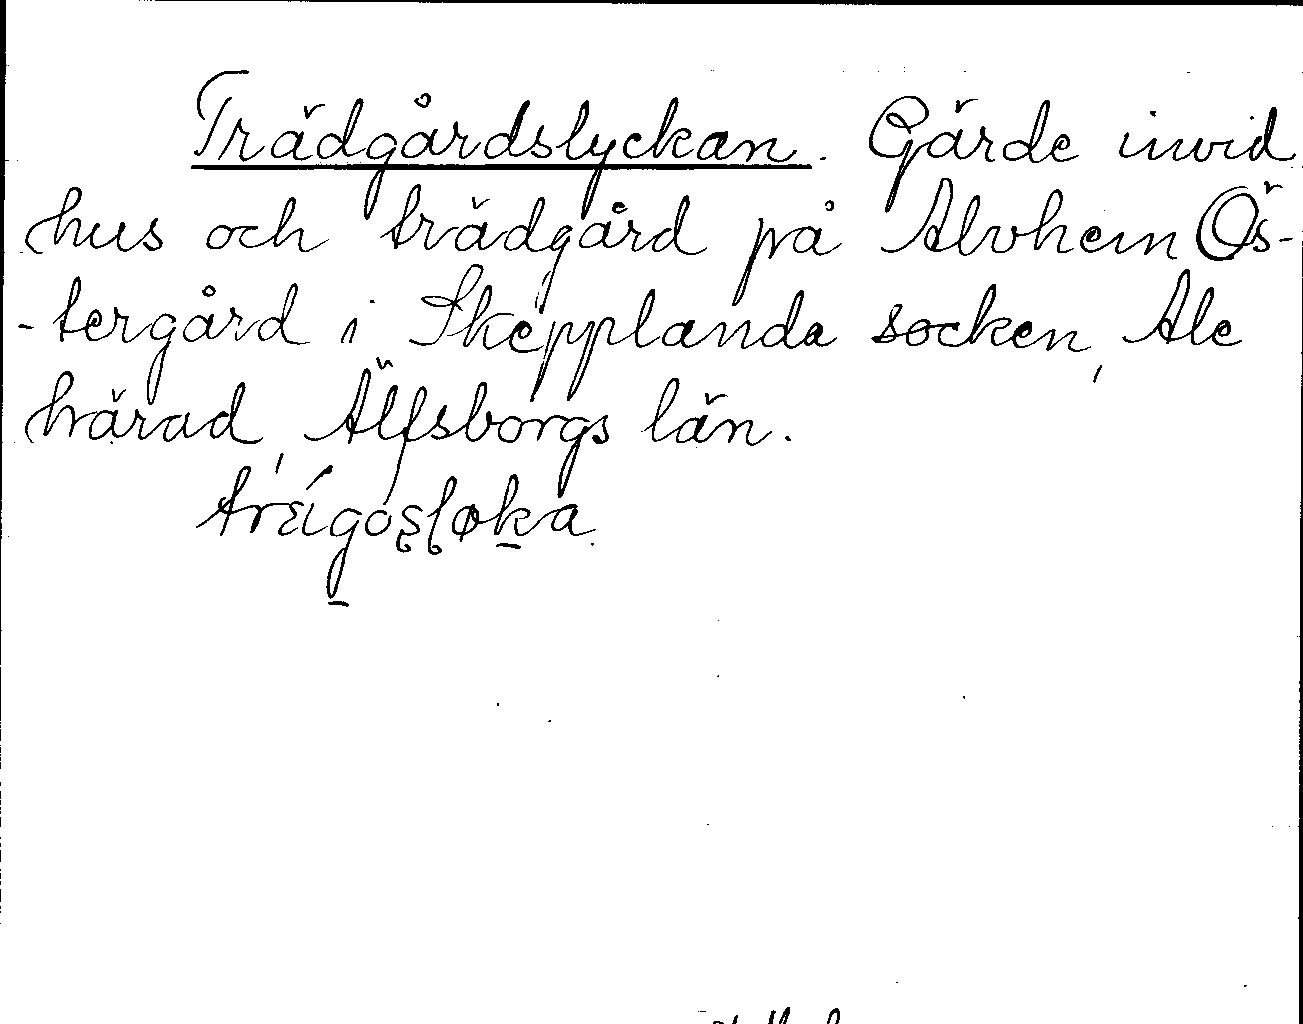 Trädgårdslyckan. Gärde invid
hus och trädgård på Alvhem Ös-
-tergård i Skepplanda socken, Ale
härad, Älfsborgs län.